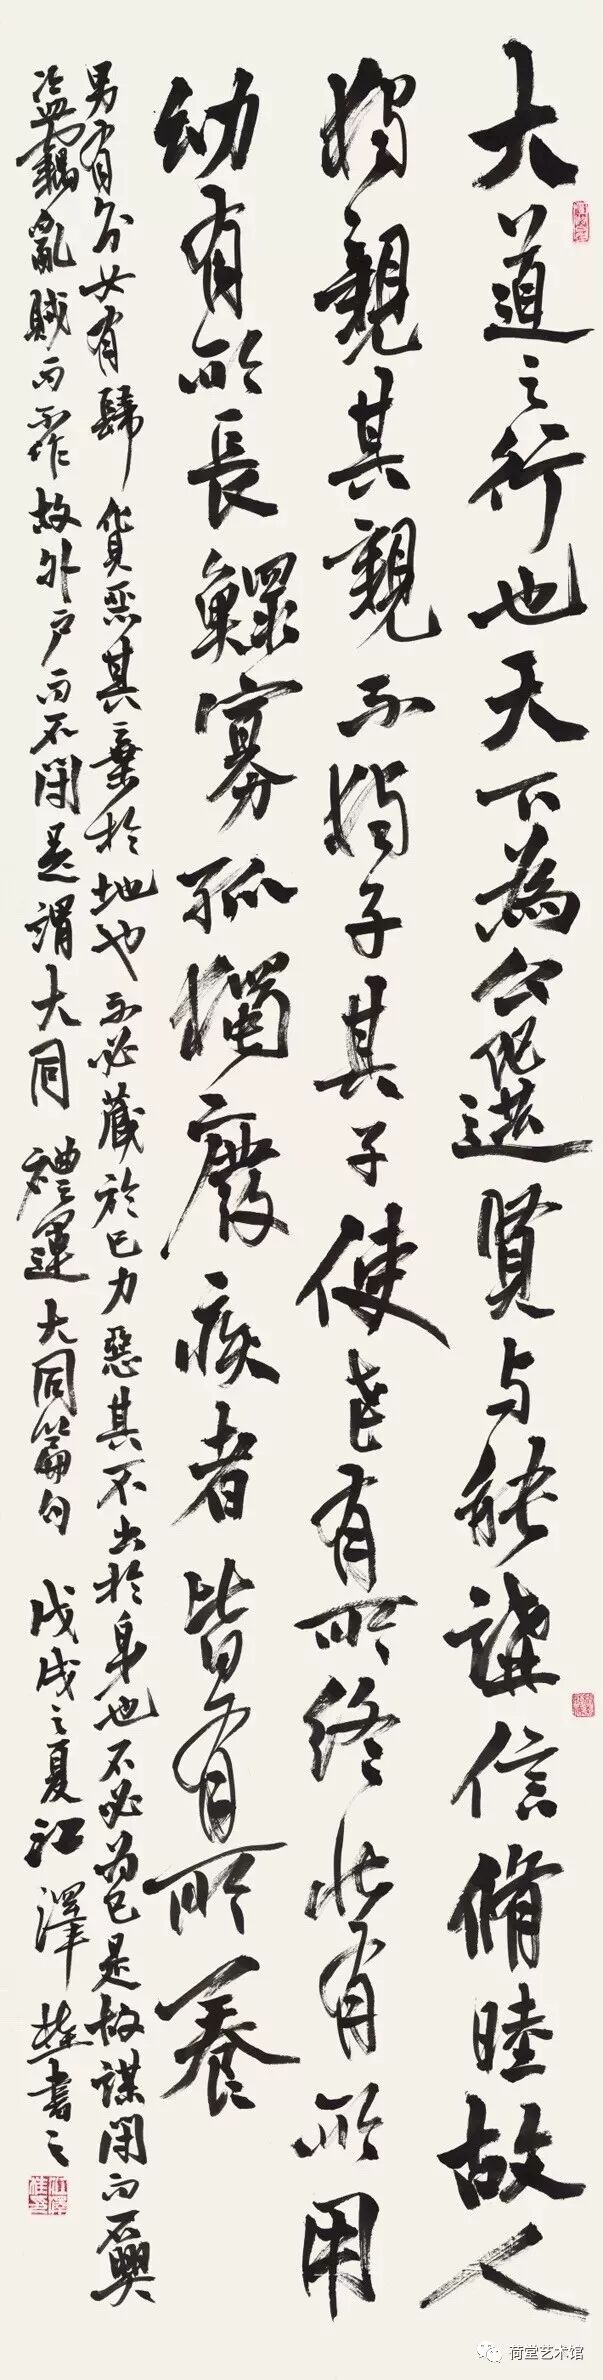 大道之行也天下為公選賢与能講信脩睦故人
獨親其親不獨子其子使老有所終壯有所用
幼有所長鰥寡孤獨廢疾者皆有所養
男有分女有歸貨惡其棄於地也不必藏於己力惡其不出於身也不必為己是故謀閉而不興
盜竊亂賊而不作故外戶而不閉是謂大同 禮運大同篇句 戊戌之夏江澤書之
荷堂艺术馆